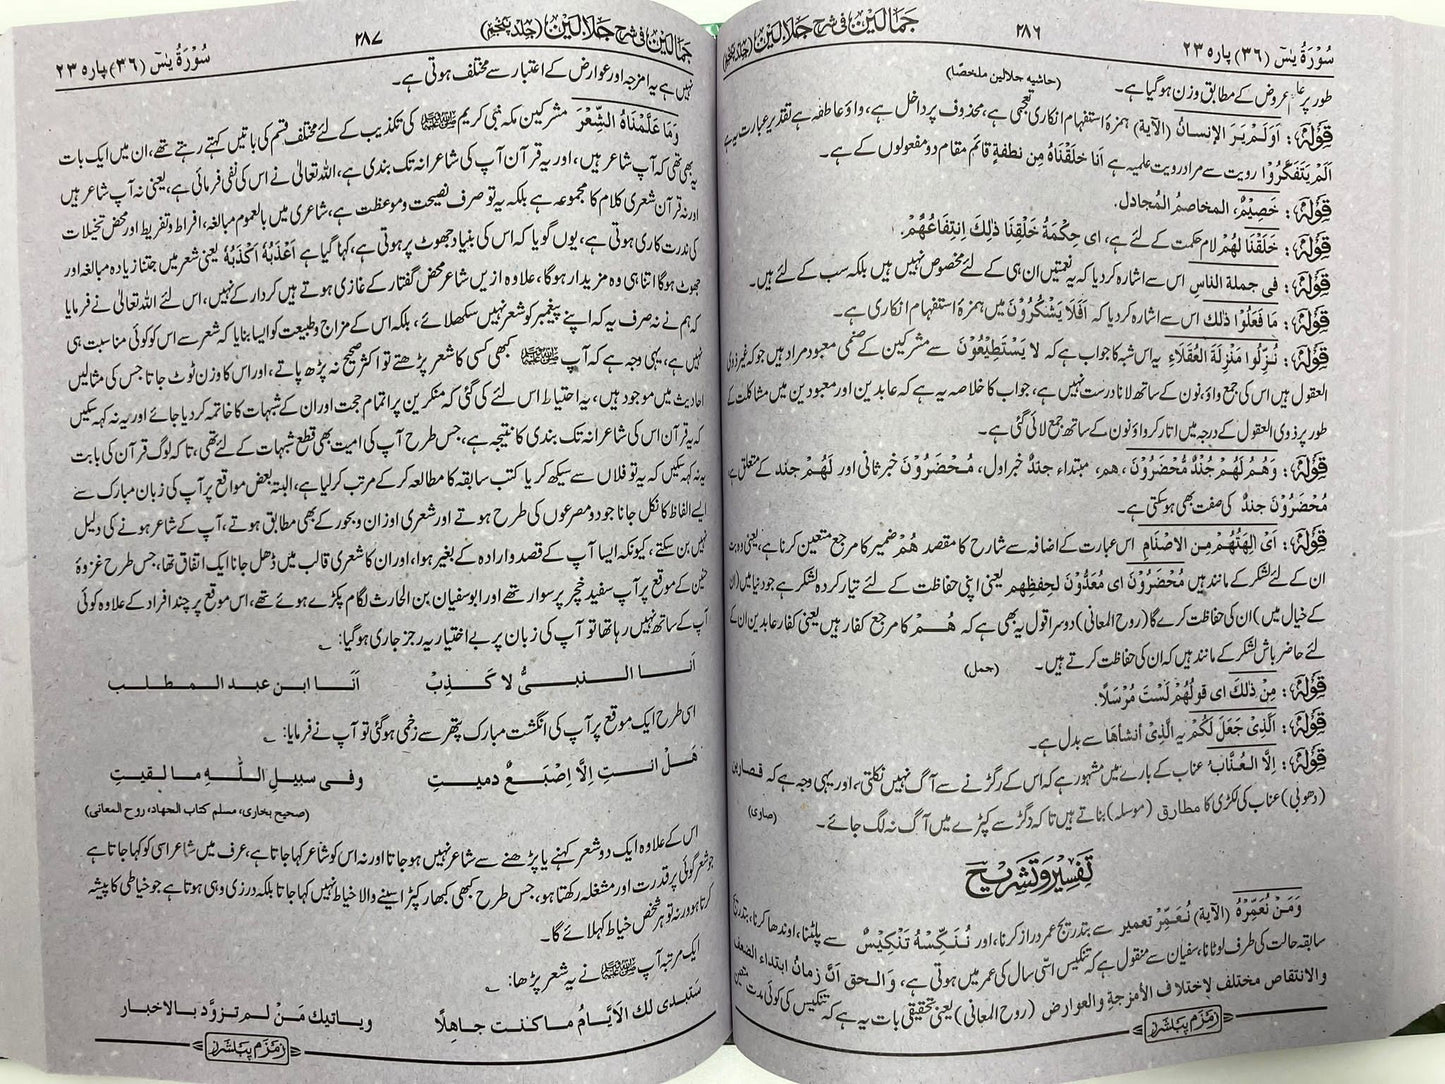 سُوْرَةُ يٰسٓ (۳۶) پارہ ۲۳
۲۸۶
جَمَالَیْن فی شرح جَلَالَیْن (جلد پنجم)
طور پر عام عروض کے مطابق وزن ہوگیا ہے۔ (حاشیہ جلالین ملخصًا)
قولہٗ: اَوَلَمْ یَرَ الإنسانُ (الآیة) ہمزہ استفہام انکاری تعجبی ہے، محذوف پر داخل ہے، واؤ عاطفہ ہے تقدیر عبارت یہ ہے
اَلَمْ یَتَفَکَّرُوْا رویت سے مراد رویت علمیہ ہے اَنا خلَقْنَاهُ مِن نطفةٍ قائم مقام دو مفعولوں کے ہے۔
قولہٗ: خَصِیْمٌ، المخاصمُ المُجادل.
قولہٗ: خَلَقْنَا لهُمْ لام حکمت کے لئے ہے، ای حِکْمَةُ خَلْقِنَا ذٰلِكَ اِنتِفَاعُهُمْ.
قولہٗ: فی جملة الناسِ اس سے اشارہ کردیا کہ یہ نعمتیں ان ہی کے لئے مخصوص نہیں ہیں بلکہ سب کے لئے ہیں۔
قولہٗ: مَا فَعَلُوْا ذٰلك اس سے اشارہ کردیا کہ اَفَلَا یَشْکُرُوْنَ میں ہمزہ استفہام انکاری ہے۔
قولہٗ: نُزِّلُوا مَنْزِلَةَ العُقَلَاءِ یہ اس شبہ کا جواب ہے کہ لا یَسْتَطِیْعُوْنَ سے مشرکین کے صنمی معبود مراد ہیں جو کہ غیر ذوی
العقول ہیں اس کی جمع واؤ، نون کے ساتھ لانا درست نہیں ہے، جواب کا خلاصہ یہ ہے کہ عابدین اور معبودین میں مشاکلت کے
طور پر ذوی العقول کے درجہ میں اتار کر واؤ نون کے ساتھ جمع لائی گئی ہے۔
قولہٗ: وَهُمْ لَهُمْ جُنْدٌ مُّحْضَرُوْنَ، هم، مبتداء جندٌ خبر اول، مُحضَرُوْنَ خبر ثانی اور لَهُمْ جند کے متعلق ہے،
مُحْضَرُوْنَ جندٌ کی صفت بھی ہوسکتی ہے۔
قولہٗ: اَیْ اٰلِهَتُهُمْ مِن الاَصْنَامِ اس عبارت کے اضافہ سے شارح کا مقصد هُمْ ضمیر کا مرجع متعین کرنا ہے، یعنی وہ بت
ان کے لئے لشکر کے مانند ہیں مُحْضَرُوْنَ ای مُعَدُّوْنَ لحِفظِهم یعنی اپنی حفاظت کے لئے تیار کردہ لشکر ہے جو دنیا میں (ان
کے خیال میں) ان کی حفاظت کرے گا (روح المعانی) دوسرا قول یہ بھی ہے کہ هُمْ کا مرجع کفار ہیں یعنی کفار عابدین ان کے
لئے حاضر باش لشکر کے مانند ہیں کہ ان کی حفاظت کرتے ہیں۔ (جمل)
قولہٗ: مِنْ ذٰلكَ ای قولُهُمْ لَسْتَ مُرْسَلًا.
قولہٗ: اَلَّذِیْ جَعَلَ لَکُمْ یہ الَّذِیْ أنشأهَا سے بدل ہے۔
قولہٗ: اِلَّا العُنَّابَ عناب کے بارے میں مشہور ہے کہ اس کے رگڑنے سے آگ نہیں نکلتی، اور یہی وجہ ہے کہ قصارین
(دھوبی) عناب کی لکڑی کا مطارق (موسلہ) بناتے ہیں تاکہ رگڑ سے کپڑے میں آگ نہ لگ جائے۔ (صاری)
تفسیر و تشریح
وَمَنْ نُعَمِّرْهُ (الآیة) نُعَمِّرْ تعمیر سے بتدریج عمر دراز کرنا، اور نُنَکِّسْهُ تَنْکِیْسٌ سے پلٹنا، اوندھا کرنا، بتدریج
سابقہ حالت کی طرف لوٹانا، سفیان سے منقول ہے کہ تنکیس اسّی سال کی عمر میں ہوتی ہے، وَالحق اَنَّ زمانُ ابتداء الضعف
والانتقاص مختلف لِاختلاف الأمزجةِ والعوارض (روح المعانی) یعنی تحقیقی بات یہ ہے کہ تنکیس کی کوئی مدت متعین
زمزم پبلشرز
جَمَالَیْن فی شرح جَلَالَیْن (جلد پنجم)
۲۸۷
سُوْرَةُ يٰسٓ (۳۶) پارہ ۲۳
نہیں ہے یہ امزجہ اور عوارض کے اعتبار سے مختلف ہوتی ہے۔
وَمَا عَلَّمْنَاهُ الشِّعْرَ مشرکین مکہ نبی کریم ﷺ کی تکذیب کے لئے مختلف قسم کی باتیں کہتے رہتے تھے، ان میں ایک بات
یہ بھی تھی کہ آپ شاعر ہیں، اور یہ قرآن آپ کی شاعرانہ تک بندی ہے، اللہ تعالیٰ نے اس کی نفی فرمائی ہے، یعنی نہ آپ شاعر ہیں
اور نہ قرآن شعری کلام کا مجموعہ ہے بلکہ یہ تو صرف نصیحت و موعظت ہے، شاعری میں بالعموم مبالغہ، افراط و تفریط اور محض تخیلات
کی ندرت کاری ہوتی ہے، یوں گویا کہ اس کی بنیاد جھوٹ پر ہوتی ہے، کہا گیا ہے اَعْذَبُهٗ اَکْذَبُهٗ یعنی شعر میں جتنا زیادہ مبالغہ اور
جھوٹ ہوگا اتنا ہی وہ مزیدار ہوگا، علاوہ ازیں شاعر محض گفتار کے غازی ہوتے ہیں کردار کے نہیں، اس لئے اللہ تعالیٰ نے فرمایا
کہ ہم نے نہ صرف یہ کہ اپنے پیغمبر کو شعر نہیں سکھلائے، بلکہ اس کے مزاج و طبیعت کو ایسا بنایا کہ شعر سے اس کو کوئی مناسبت ہی
نہیں ہے، یہی وجہ ہے کہ آپ ﷺ کبھی کسی کا شعر پڑھتے تو اکثر صحیح نہ پڑھ پاتے، اور اس کا وزن ٹوٹ جاتا جس کی مثالیں
احادیث میں موجود ہیں، یہ احتیاط اس لئے کی گئی کہ منکرین پر اتمام حجت اور ان کے شبہات کا خاتمہ کردیا جائے اور یہ نہ کہہ سکیں
کہ یہ قرآن اس کی شاعرانہ تک بندی کا نتیجہ ہے، جس طرح آپ کی امیت بھی قطع شبہات کے لئے تھی، تاکہ لوگ قرآن کی بابت
یہ نہ کہہ سکیں کہ یہ تو فلاں سے سیکھ کر یا کتب سابقہ کا مطالعہ کرکے مرتب کرلیا ہے، البتہ بعض مواقع پر آپ کی زبان مبارک سے
ایسے الفاظ کا نکل جانا جو دو مصرعوں کی طرح ہوتے اور شعری اوزان و بحور کے بھی مطابق ہوتے، آپ کے شاعر ہونے کی دلیل
نہیں بن سکتے، کیونکہ ایسا آپ کے قصد و ارادہ کے بغیر ہوا، اور ان کا شعری قالب میں ڈھل جانا ایک اتفاق تھا، جس طرح غزوۂ
حنین کے موقع پر آپ سفید خچر پر سوار تھے اور ابوسفیان بن الحارث لگام پکڑے ہوئے تھے، اس موقع پر چند افراد کے علاوہ کوئی
آپ کے ساتھ نہیں رہا تھا تو آپ کی زبان پر بے اختیار یہ رجز جاری ہوگیا:
اَنَا النبیُّ لا کَذِبْ اَنَا ابن عبد المطلب
اسی طرح ایک موقع پر آپ کی انگشت مبارک پتھر سے زخمی ہوگئی تو آپ نے فرمایا:
هَلْ انتِ اِلَّا اِصْبَعٌ دمیتِ وفی سبیلِ اللّٰهِ ما لقیتِ
(صحیح بخاری، مسلم کتاب الجهاد، روح المعانی)
اس کے علاوہ ایک دو شعر کہنے یا پڑھنے سے شاعر نہیں ہوجاتا اور نہ اس کو شاعر کہا جاتا ہے، عرف میں شاعر اسی کو کہا جاتا ہے
جو شعر گوئی پر قدرت اور مشغلہ رکھتا ہو، جس طرح کبھی کبھار کپڑا سینے والا خیاط نہیں کہا جاتا بلکہ درزی وہی ہوتا ہے جو خیاطی کا پیشہ
کرتا ہو ورنہ تو ہر شخص خیاط کہلائے گا۔
ایک مرتبہ آپ ﷺ نے یہ شعر پڑھا:
ستبدی لك الاَیَّامُ ما کنت جاهِلًا ویاتیك مَنْ لم تزوَّد بالاخبار
زمزم پبلشرز